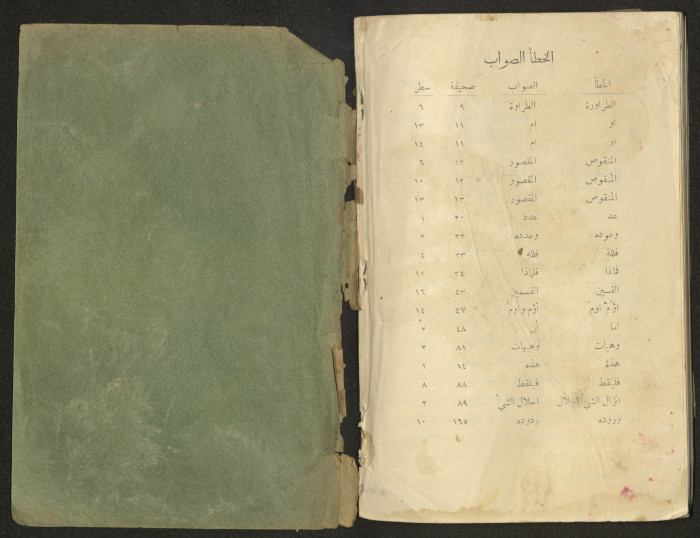 الخطأ الصواب
الخطأ الصواب صحيفة سطر
الطراورة الطراوة ٩ ٦
او ام ١١ ١٣
او ام ١١ ١٤
المنقوص المقصور ١٢ ٦
المنقوص المقصور ١٢ ١٠
المنقوص المقصور ١٣ ١٣
عد عدد ٢٠ ١
وعوده وعدده ٢٢ ٢
فلالة فلاه ٢٣ ٤
فاذا فاماذا ٢٤ ١٠
القسين القسمين ٤٣ ١٦
اؤم اوم اؤم وأوم ٤٧ ١٤
اما أن ٤٨ ٣
وهبات وهبهات ٨١ ٢
هذة هذه ٨٤ ١
فليقط فيلقط ٨٨ ٨
انزال الشي احلال الشي ٨٩ ٣
وروده ردوده ١٦٥ ١٠